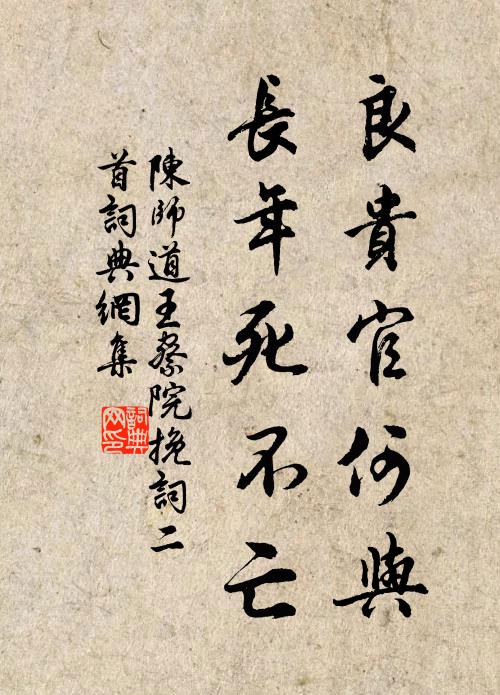 良貴官何與
長年死不亡
陳師道王察院挽詞二
首詞典網集
詞典
网印